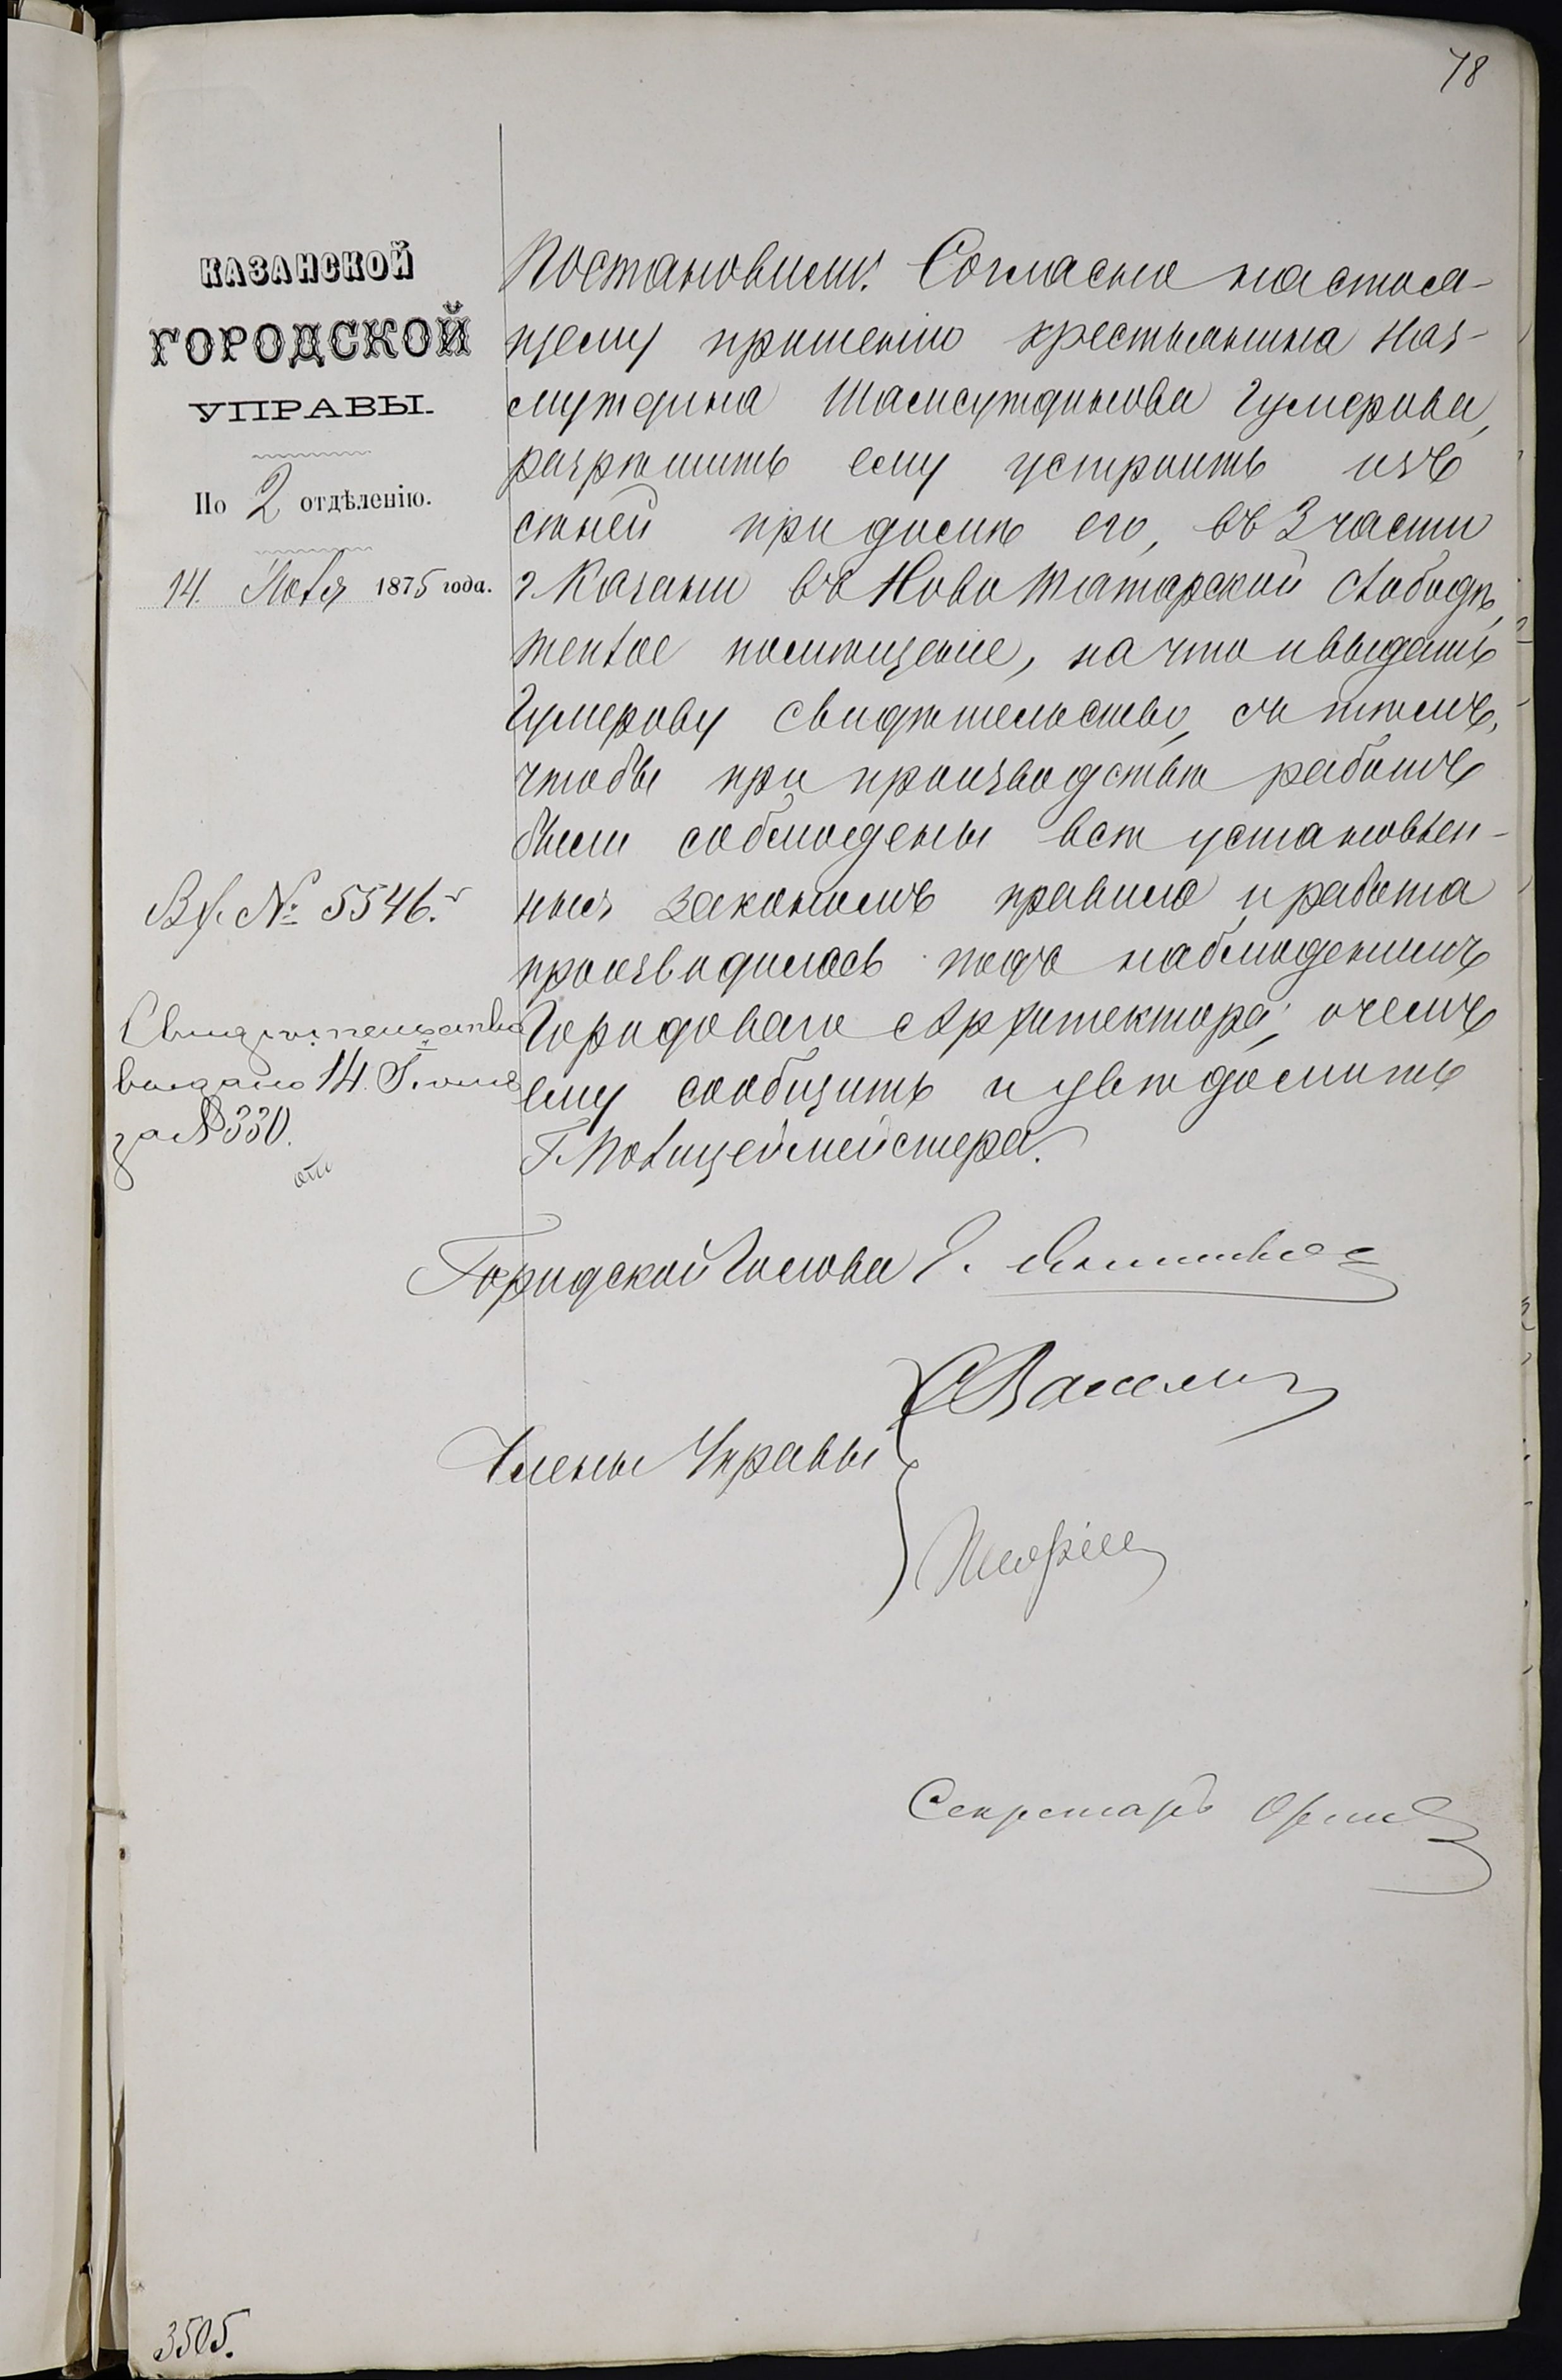 78
КАЗАНСКОЙ
ГОРОДСКОЙ
УПРАВЫ.
По 2 отдѣленію.
14. Іюня 1875 года.
Вх. № 5546.
Свидѣтельство
выдано 14 Іюня
за № 330.
Постановили: Согласно настоя-
щему прошенію крестьянина Наз-
мутдина Шамсутдинова Гумерова,
разрѣшить ему устроить изъ
сѣней при домѣ его, въ 3 части
г. Казани въ Ново Татарской слободѣ,
теплое помѣщеніе, на что и выдать
Гумерову свидѣтельство, съ тѣмъ,
чтобы при производствѣ работъ
были соблюдены всѣ установлен-
ныя закономъ правила и работа
производилась подъ наблюденіемъ
Городоваго Архитектора, о чемъ
ему сообщить и увѣдомить
Г. Полицеймейстера.
Городской Голова
Члены Управы
Секретарь
3505.